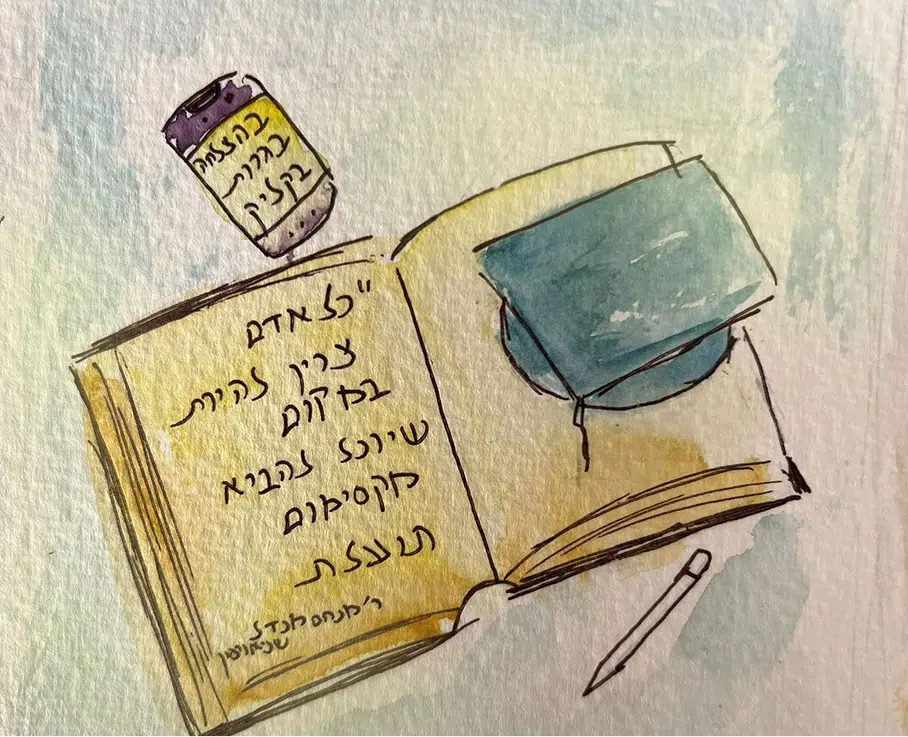 בהצלחה
בגרות
בקליק
"כל אדם
צריך להיות
במקום
שיוכל להביא
מקסימום
תועלת
ר' מנחם מנדל
שניאורסון